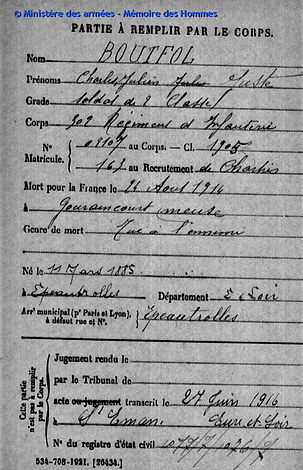 © Ministère des armées - Mémoire des Hommes
PARTIE À REMPLIR PAR LE CORPS.
Nom BOUTFOL
Prénoms Charles Julien Juste
Grade soldat de 2 Classe
Corps 302 Régiment d'Infanterie
N° 02107 au Corps. - Cl. 1905
Matricule. 163 au Recrutement de Chartres
Mort pour la France le 22 Aout 1914
à Gouraincourt meuse
Genre de mort Tué à l'ennemi
Né le 11 Mars 1885
à Epeautrolles Département E Loir
Arrᵗ municipal (pʳ Paris et Lyon),
à défaut rue et N°. Epeautrolles
Cette partie
n'est pas à remplir
par le Corps.
Jugement rendu le
par le Tribunal de
acte ou jugement transcrit le 27 Juin 1916
à St Eman. Eure et Loir
N° du registre d'état civil
534-708-1921. [26434.]